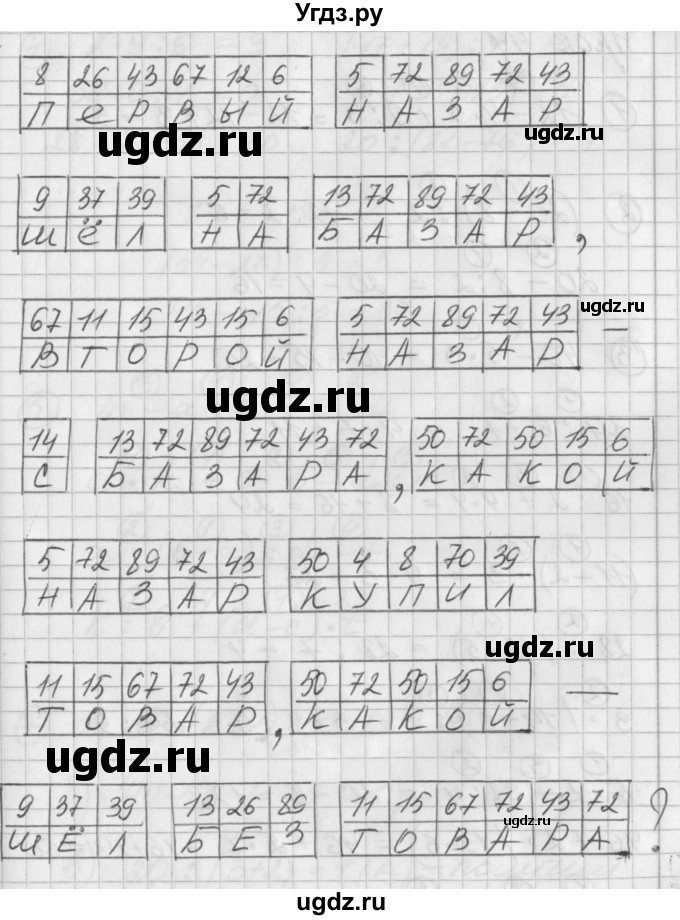 Угдз.ру
8 26 43 67 12 6 5 72 89 72 43
П Е Р В Ы Й Н А З А Р
ugdz.ru
9 37 39 5 72 13 72 89 72 43
Ш Ё Л Н А Б А З А Р ,
67 11 15 43 15 6 5 72 89 72 43 —
ugdz.ru
В Т О Р О Й Н А З А Р
ugdz.ru
14 13 72 89 72 43 72 50 72 50 15 6
С Б А З А Р А , К А К О Й
5 72 89 72 43 50 4 8 70 39
Н А З А Р К У П И Л
ugdz.ru
11 15 67 72 43 50 72 50 15 6 —
Т О В А Р , К А К О Й
ugdz.ru
9 37 39 13 26 89 11 15 67 72 43 72
ugdz.ru
Ш Ё Л Б Е З Т О В А Р А ?
ugdz.ru